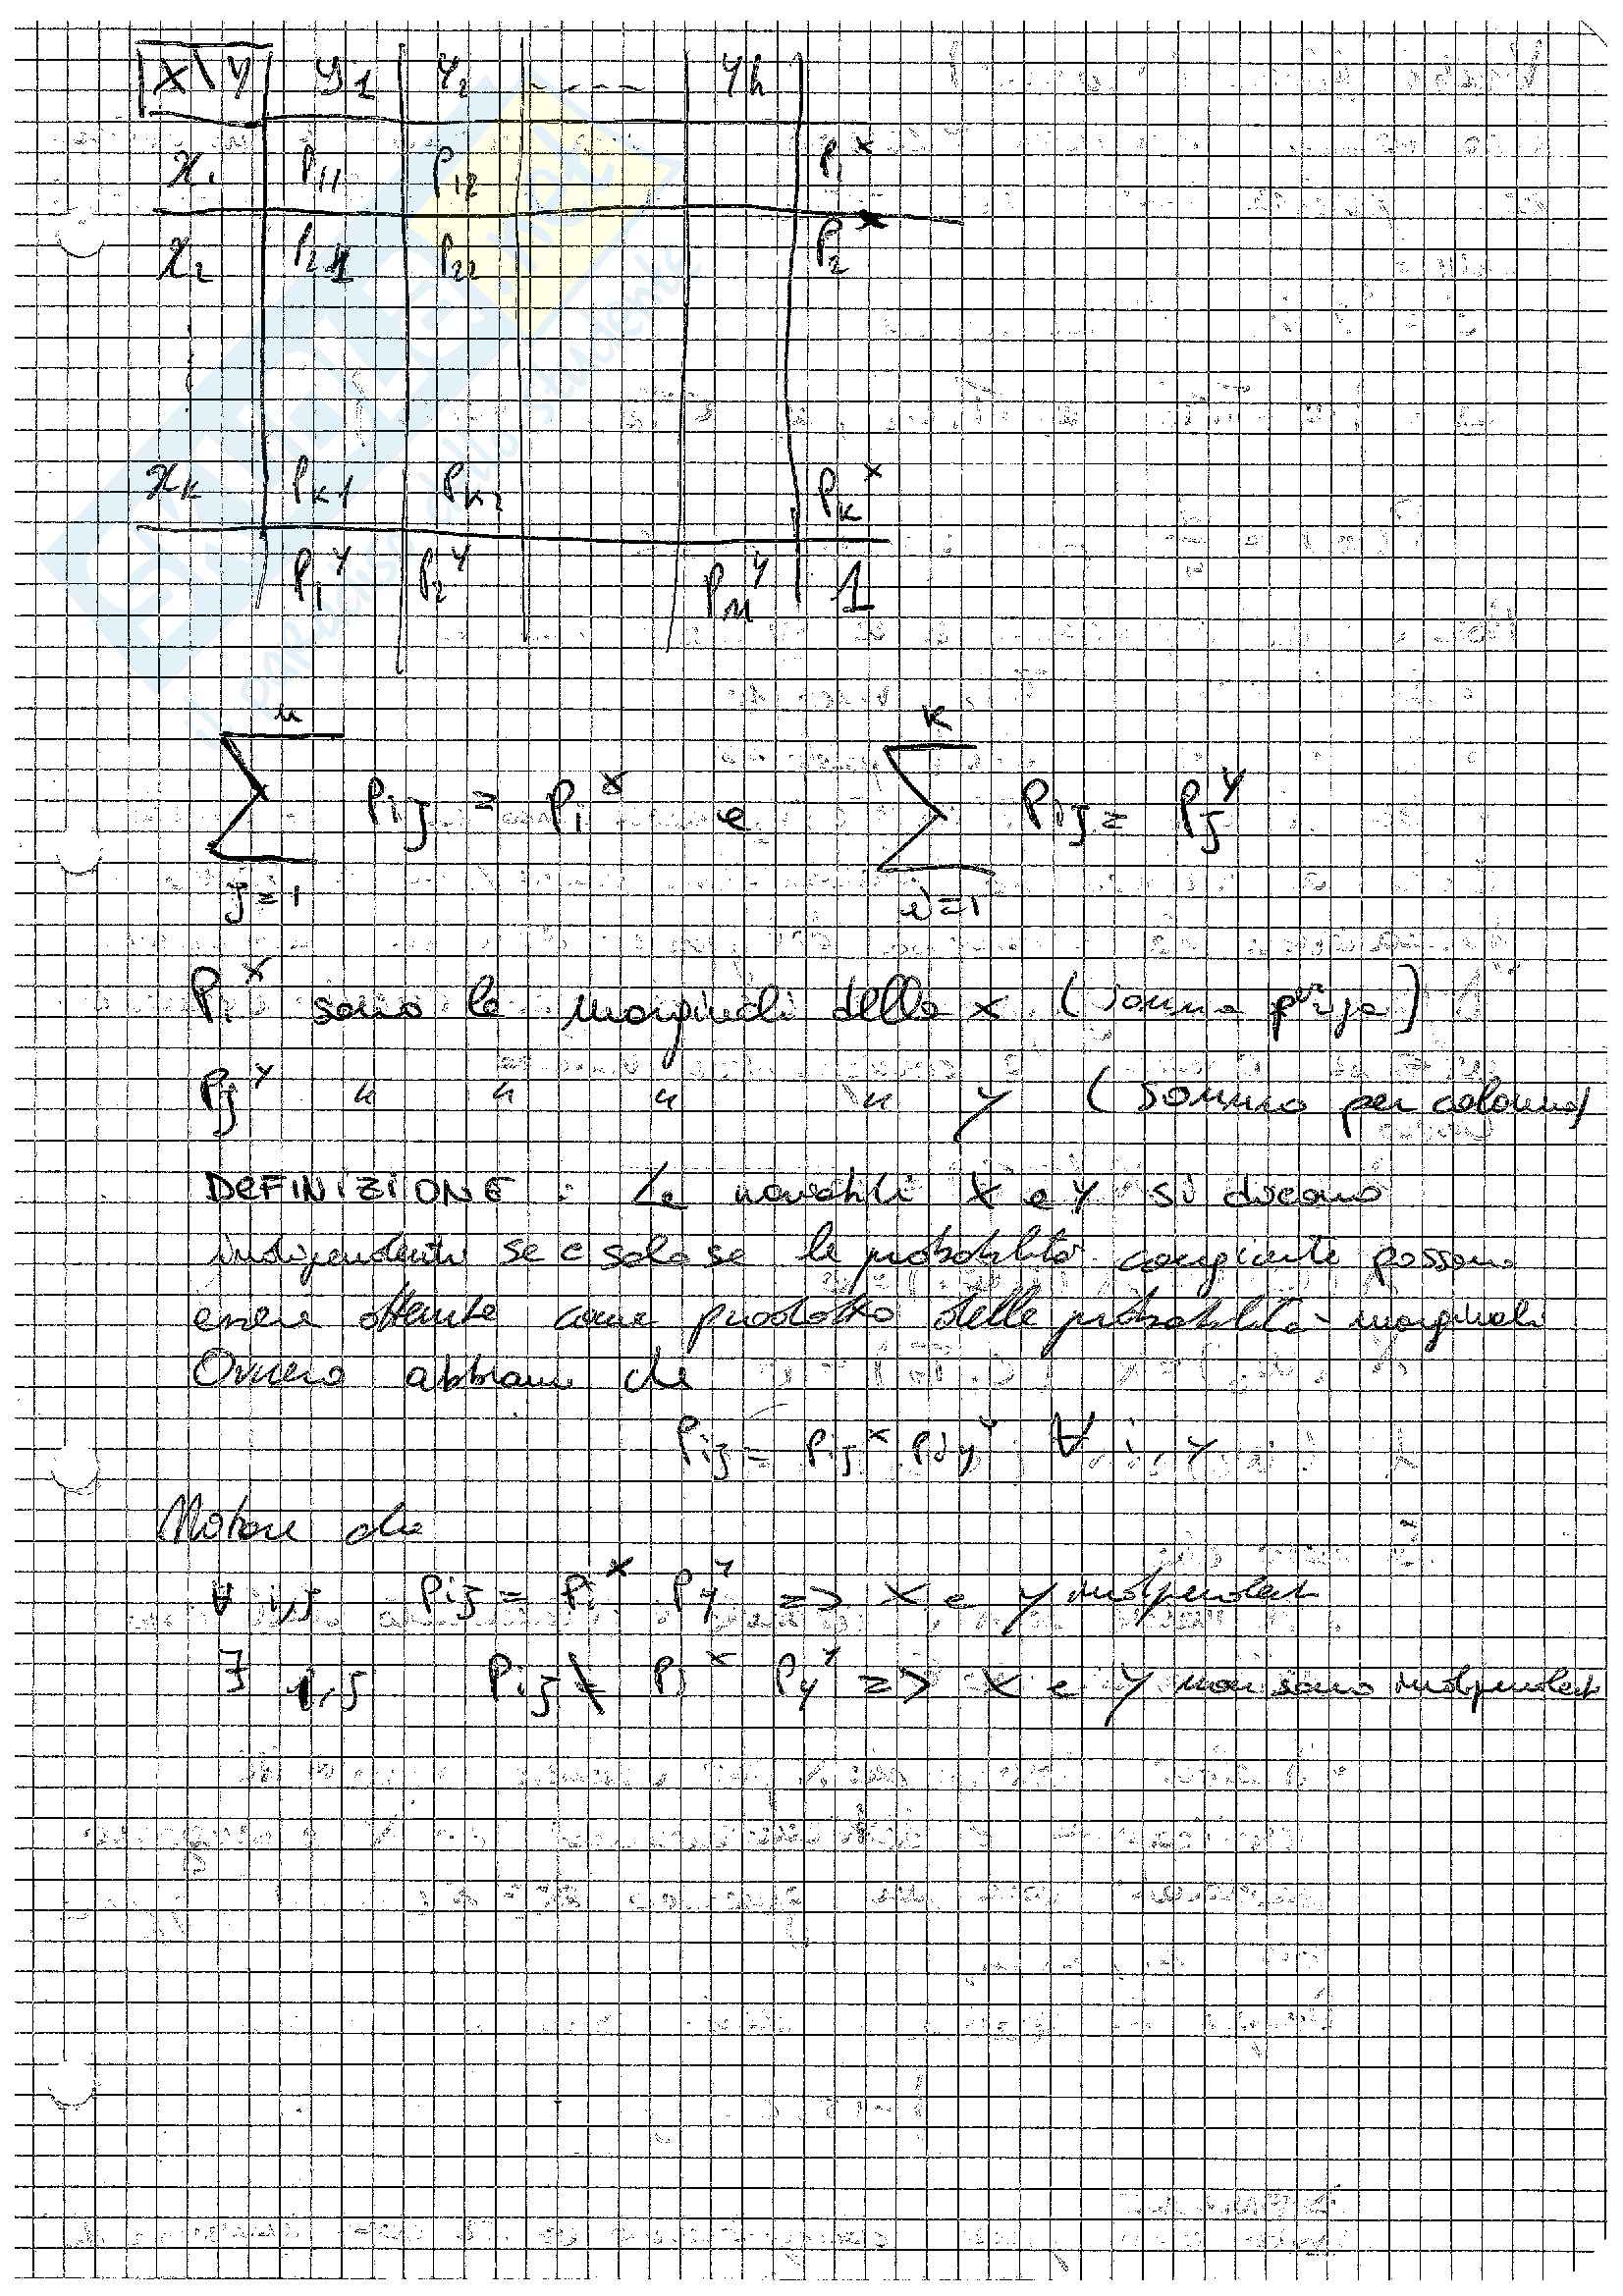 X\Y y1 y2 ---- yh
x1 P11 P12 P1^x
x2 P21 P22 P2^x
xk Pk1 Pk2 Pk^x
P1^y P2^y Pn^y 1
n ∑ j=1 Pij = Pi^x e k ∑ i=1 Pij = Pj^y
Pi^x sono le marginali della x (somma per riga)
Pj^y " " " " y (somma per colonna)
DEFINIZIONE : Le variabili X e Y si dicono
indipendenti se e solo se le probabilità congiunte possono
essere ottenute come prodotto delle probabilità marginali
Ovvero abbiamo che
Pij = Pij^x Pjy^y ∀ i, y
Notare che
∀ i,j Pij = Pi^x Py^y => X e Y indipendenti
∃ i,j Pij ≠ Pj^x Py^y => X e Y non sono indipendenti